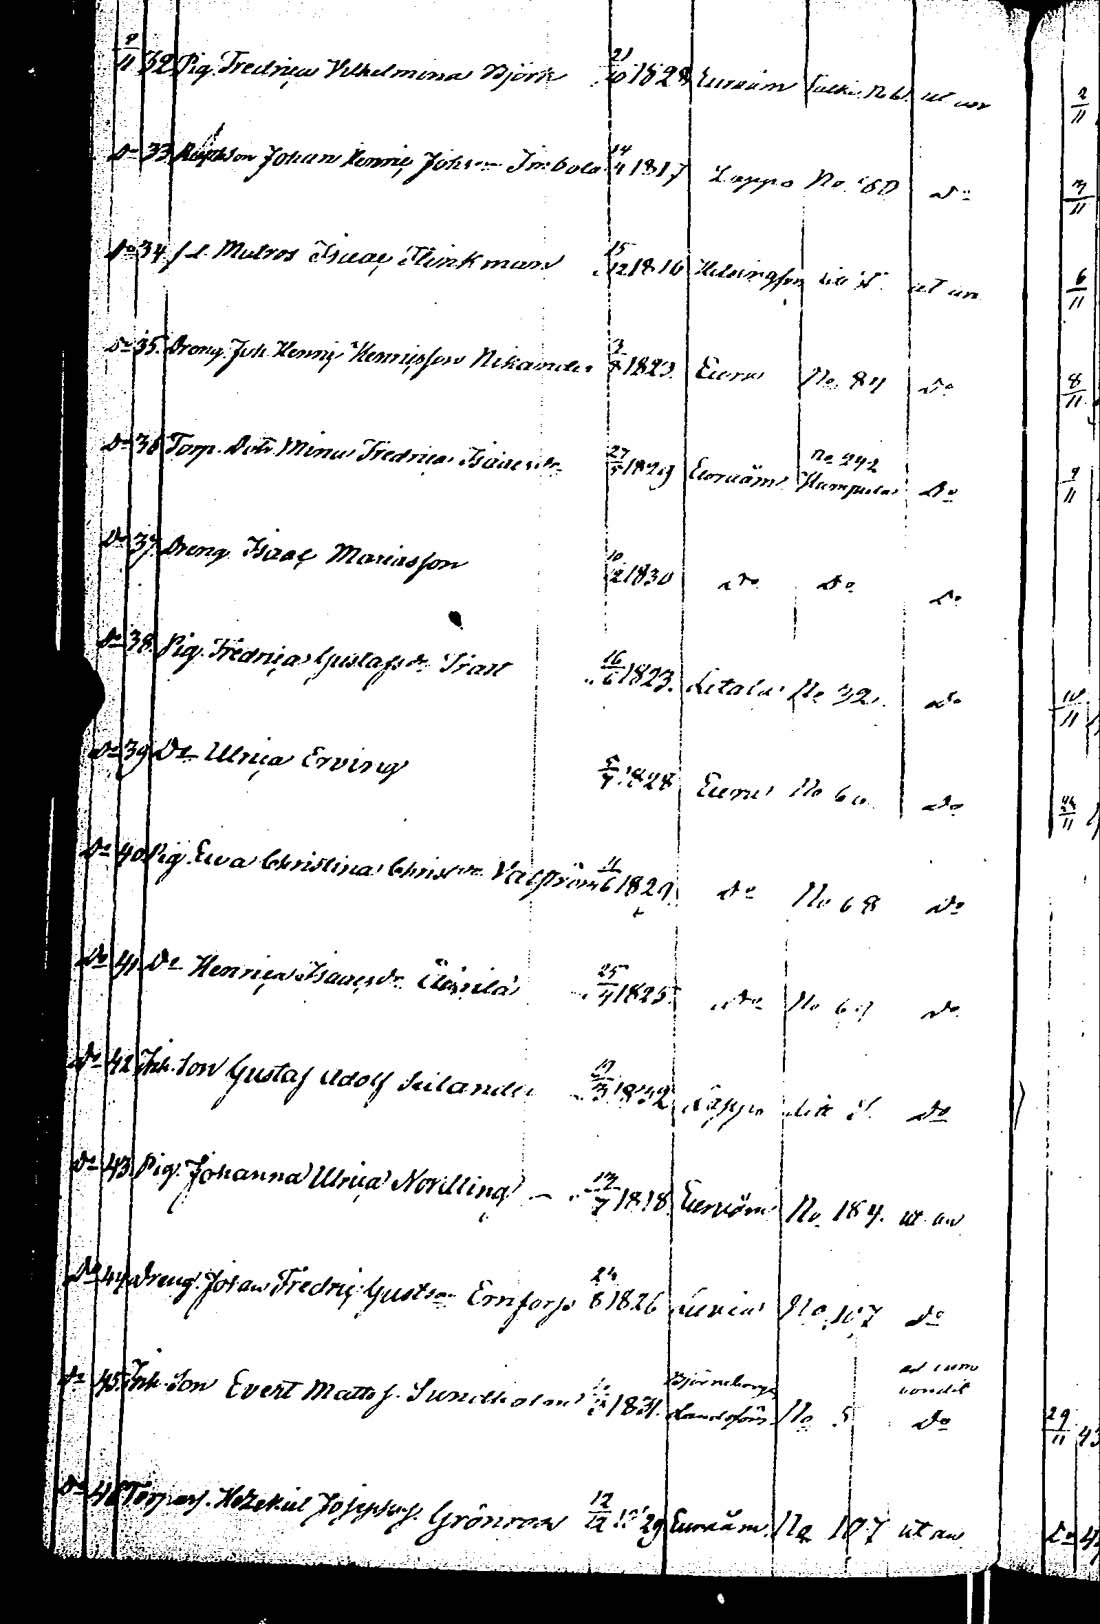 8/11 32 Pig. Fredrica Vilhelmina Björk 1828 Euraåm ut an
Do 33 Johan Henric Johs 14/4 1817 Lappo No. 80 Do
Do 34 Isaac Flinkman 15/12 1816 ut an
Do 35. Dreng. Joh. Henric Henricsson Nikander 3/8 1823. Eura No. 84 Do
Do 36 Torp. Dotr Mina Fredrica Isaacsdr 27/5 1829 Euraåm No 242 Kumpula Do
Do 37. Dreng Isaac Mariasson 10/12 1830 Do Do Do
Do 38. Pig. Fredrica Gustafsdr Trast 16/6 1823. Letala No 32. Do
Do 39 Do Ulrica Erving 5/7 1828 Eura No 60 Do
Do 40 Pig. Eva Christina Christdr Valström 11/6 1829. Do No 68 Do
Do 41. Do Henrica Isaacsdr 25/4 1825. Do No Do
Do 42 Inh. Son Gustaf Adolf Selander 1832 Lappo Litt Do
Do 43. Pig. Johanna Ulrica Nordling 13/7 1818. Euraåm No 184. ut an
Do 44 Dreng. Johan Fredric Gustson Ernfors 24/8 1826 Luvia No. 107 Do
Do 45. Inh. Son Evert Matts f. Sundholm 1831. Björneborgs Landsförs. No 5 ad cum condit Do
Do 46 Hezekiel Josephsf. Grönroos 12/12 1829 Euraåm. No 107 ut an
2/11
3/11
6/11
8/11
9/11
10/11
24/11
29/11 43
Do 4